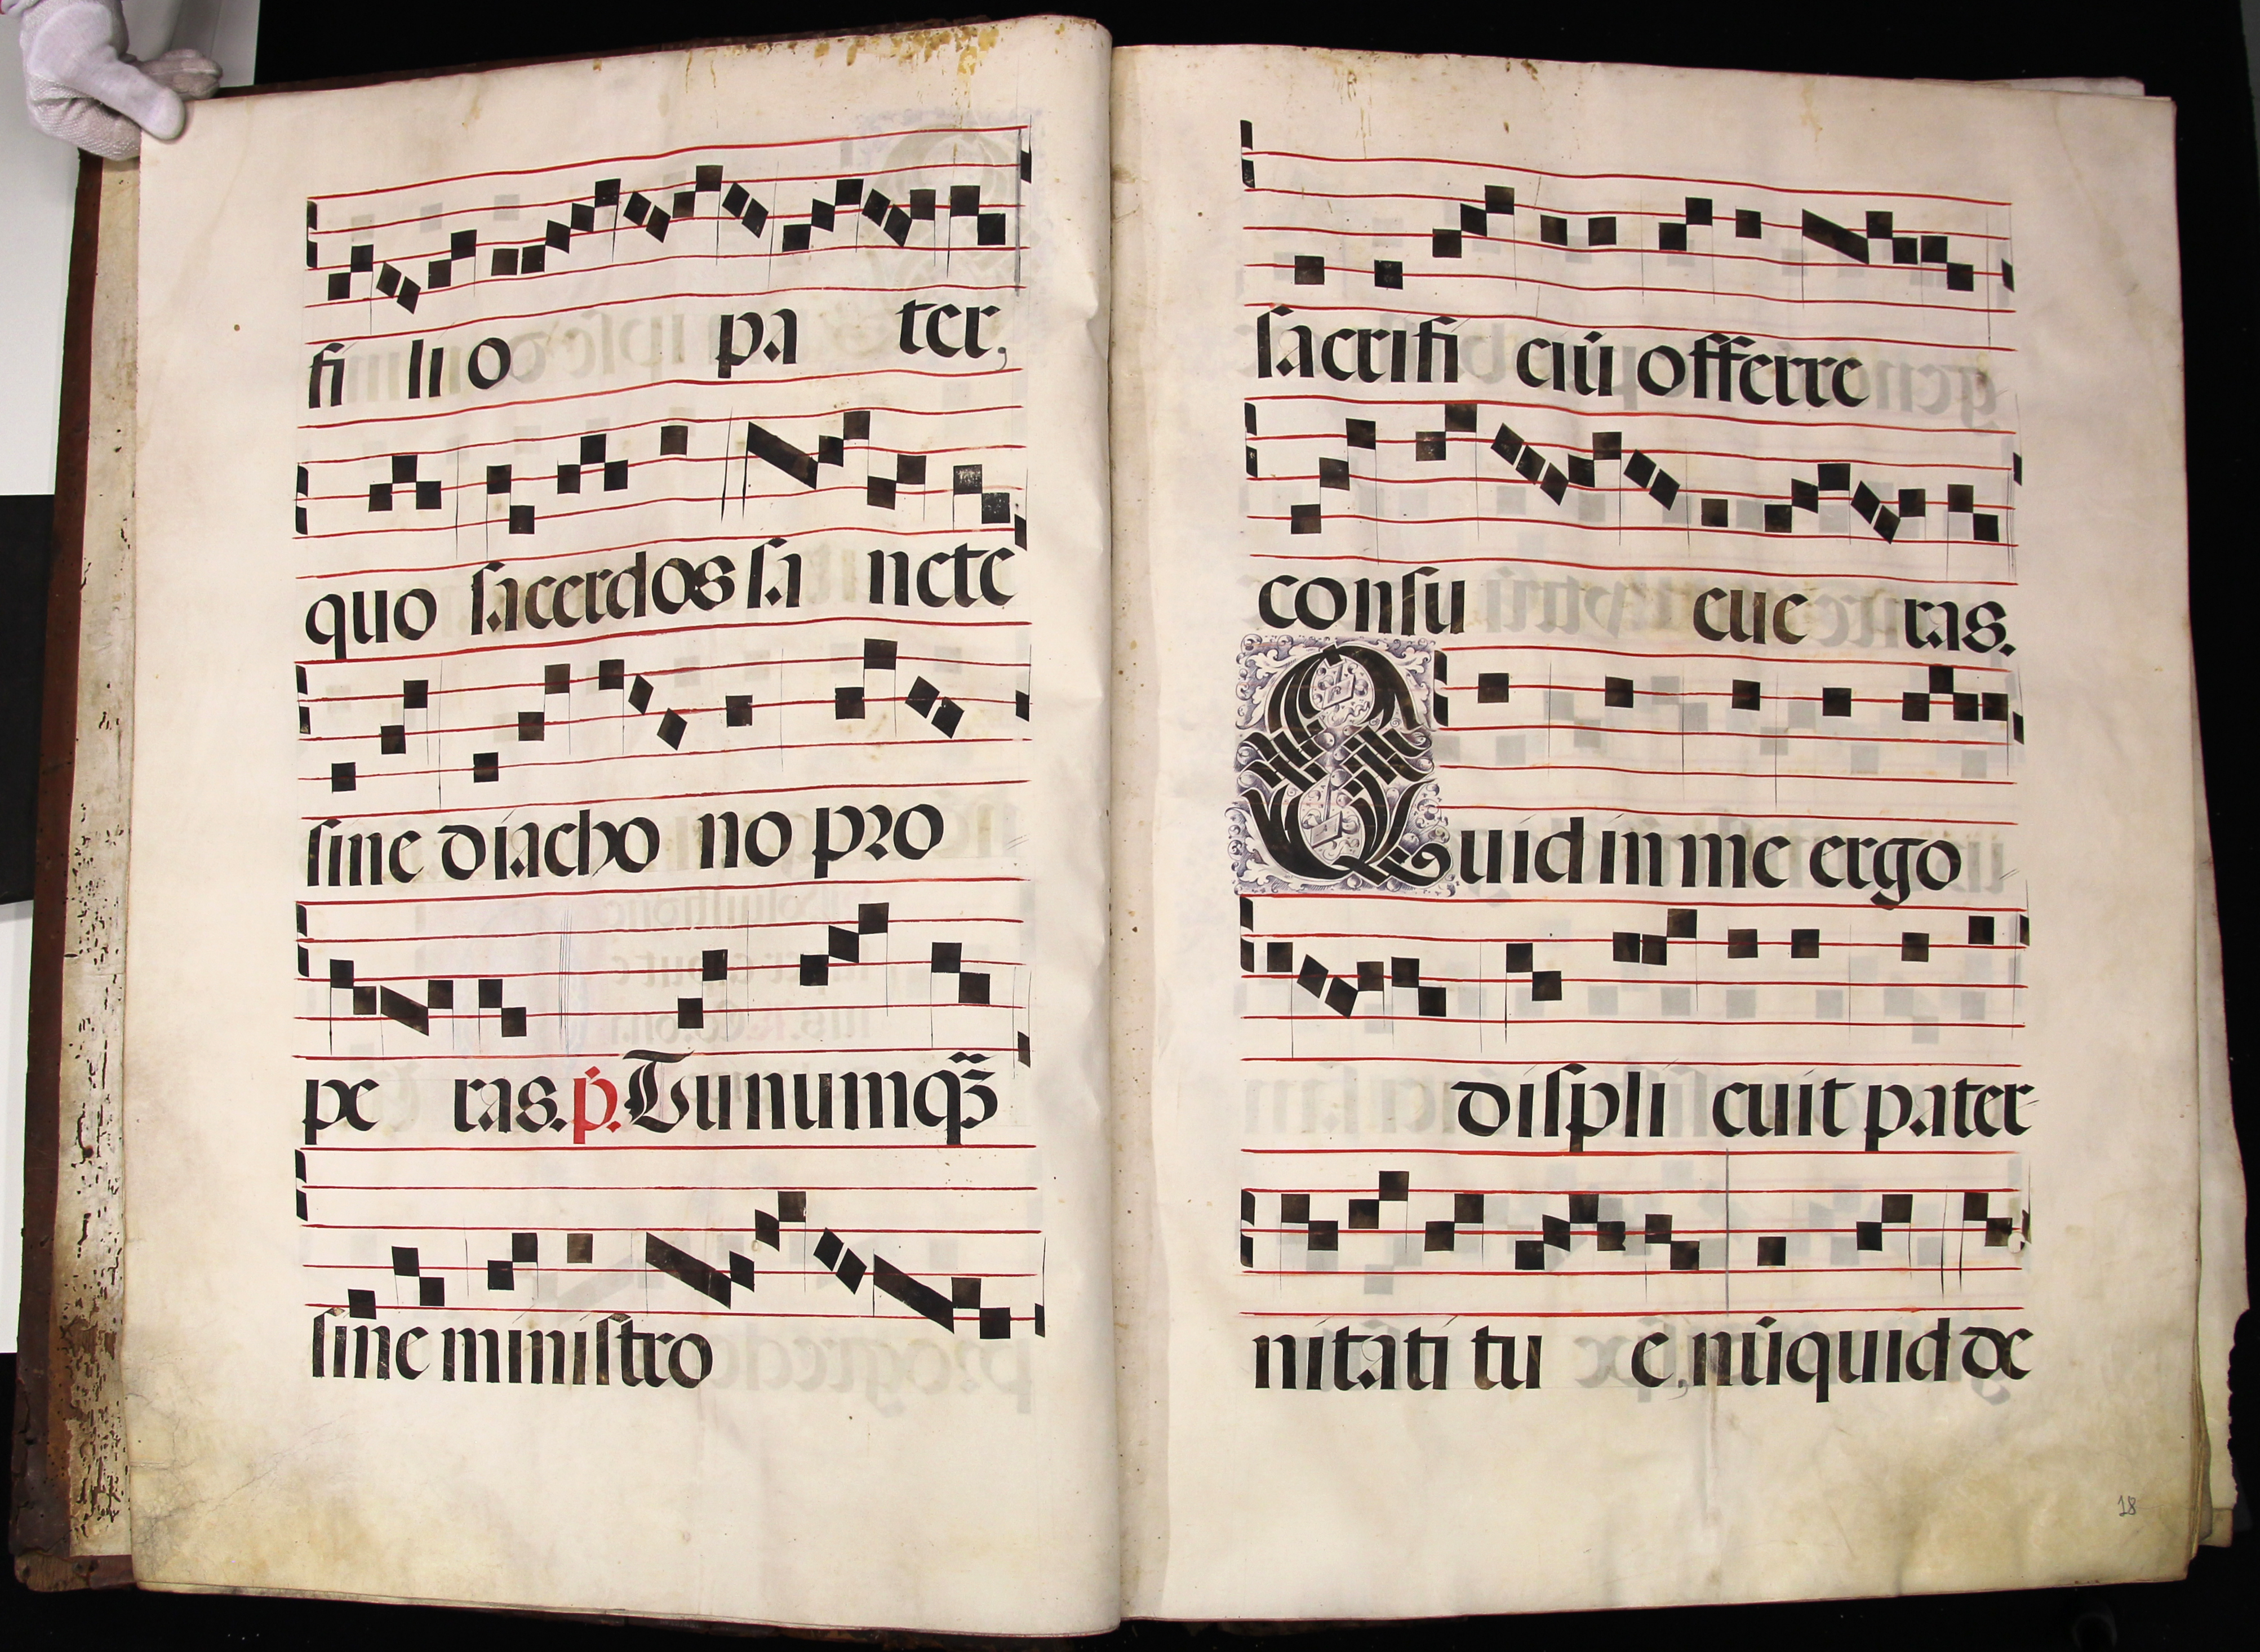 fi li o pa ter,
quo sacerdos sa ncte
sine diacho no pro
pe ras. p̃. Tu numq̃ȝ
sine ministro
sacrifi ciū offerre
consu eue ras.
Quid in me ergo
displi cuit pater
nitati tu e, nūquid de
18